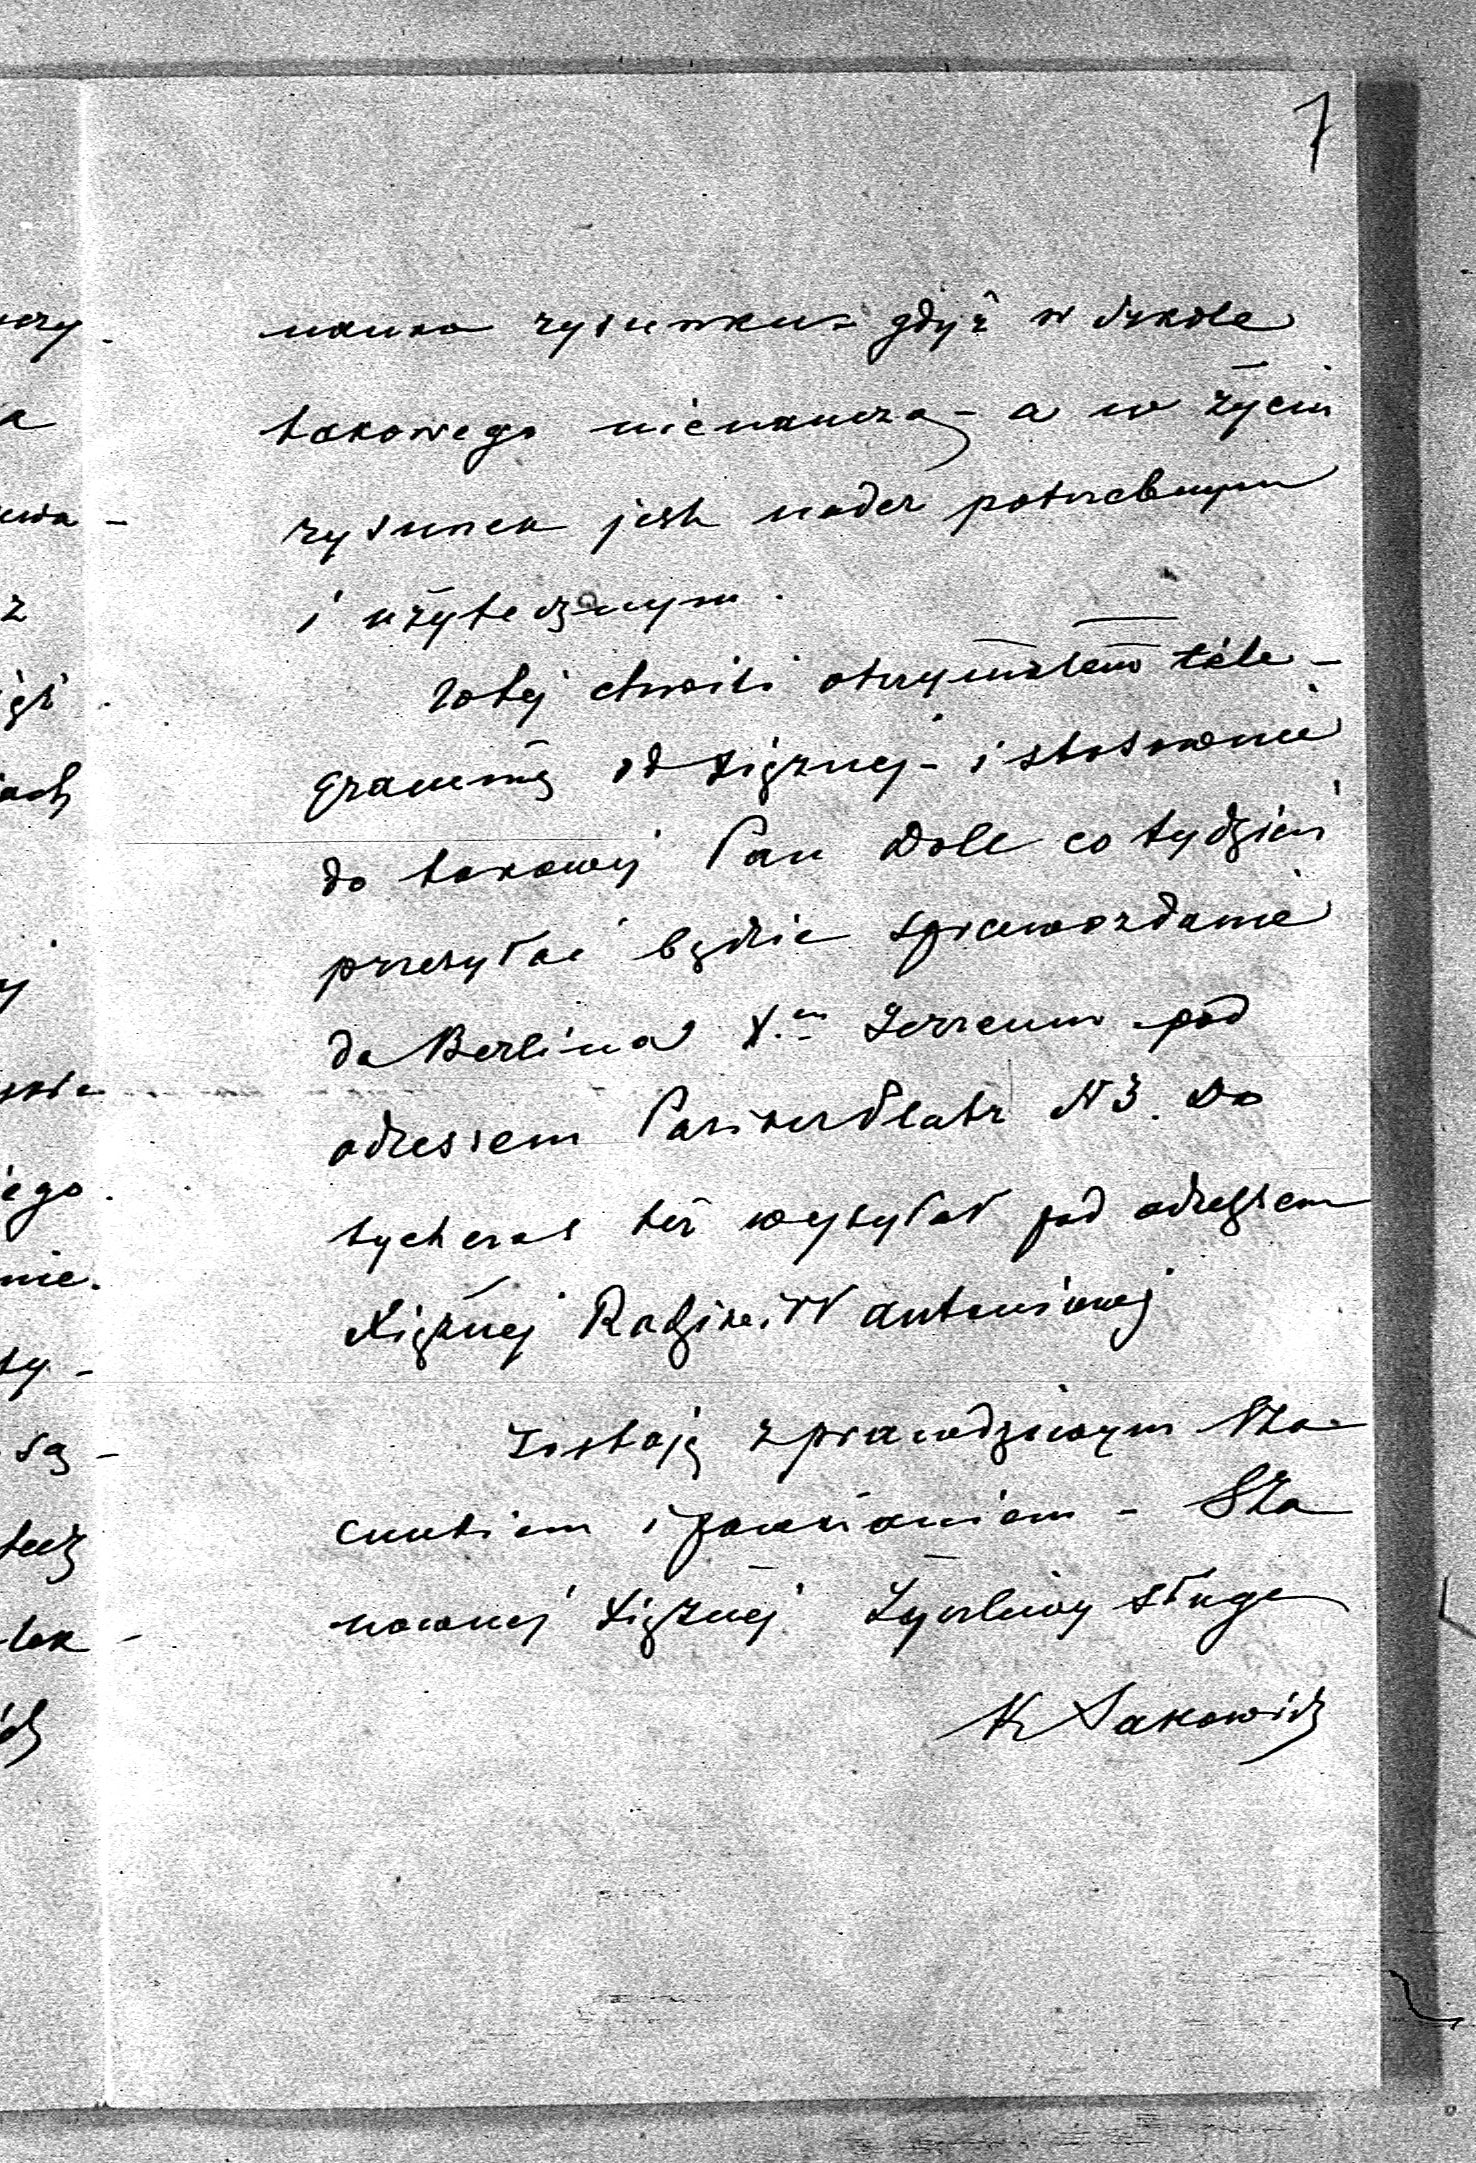 7
nauka rysunku - gdyż w szkole
takowego nienauczą - a w życiu
rysunek jest nader potrzebnym
i użytecznym.
W tej chwili otrzymałem tele-
grammę od Xiężnej - i stosownie
do takowej Pan Doll co tydzień
przesyłać będzie sprawozdanie
do Berlina X.en Jerzemu pod
adressem Pariser Platz N 3. Do
tychczas też wysyłał pod adressem
Xiężnej Radziwiłł Antoniowej
Zostaję z prawdziwym Sza-
cunkiem i poważaniem - Sza
nownej Xiężnej Życzliwy sługa
K Sakowicz